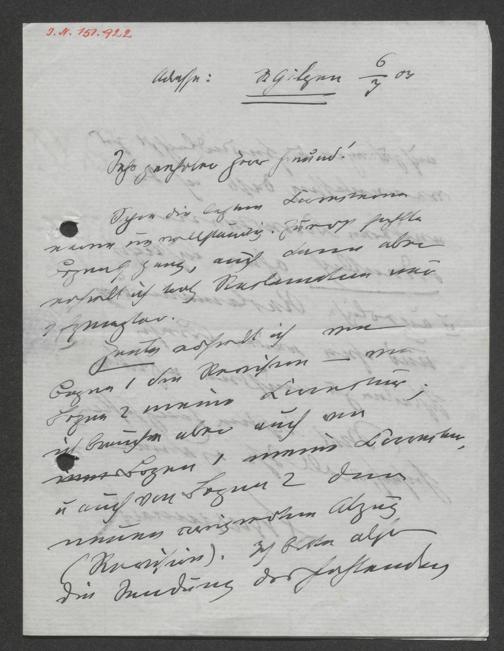 I.N. 151.922
Adresse: St Gilgen 6/7 03
Sehr geehrter Herr Freund!
Schon die letzten Correcturen
waren unvollständig. Zuerst fehlte
Bogen ganz, auch dann aber
erhielt ich trotz Reclamation nur
1 Exemplar.
Heute erhielt ich von
Bogen 1 die Revision – von
Bogen 2 meine Correctur;
ich brauche aber auch von
Bogen 1 meine Correctur,
u auch von Bogen 2 den
neuen corrigierten Abzug
(Revision). Ich bitte also
die Sendung des fehlenden